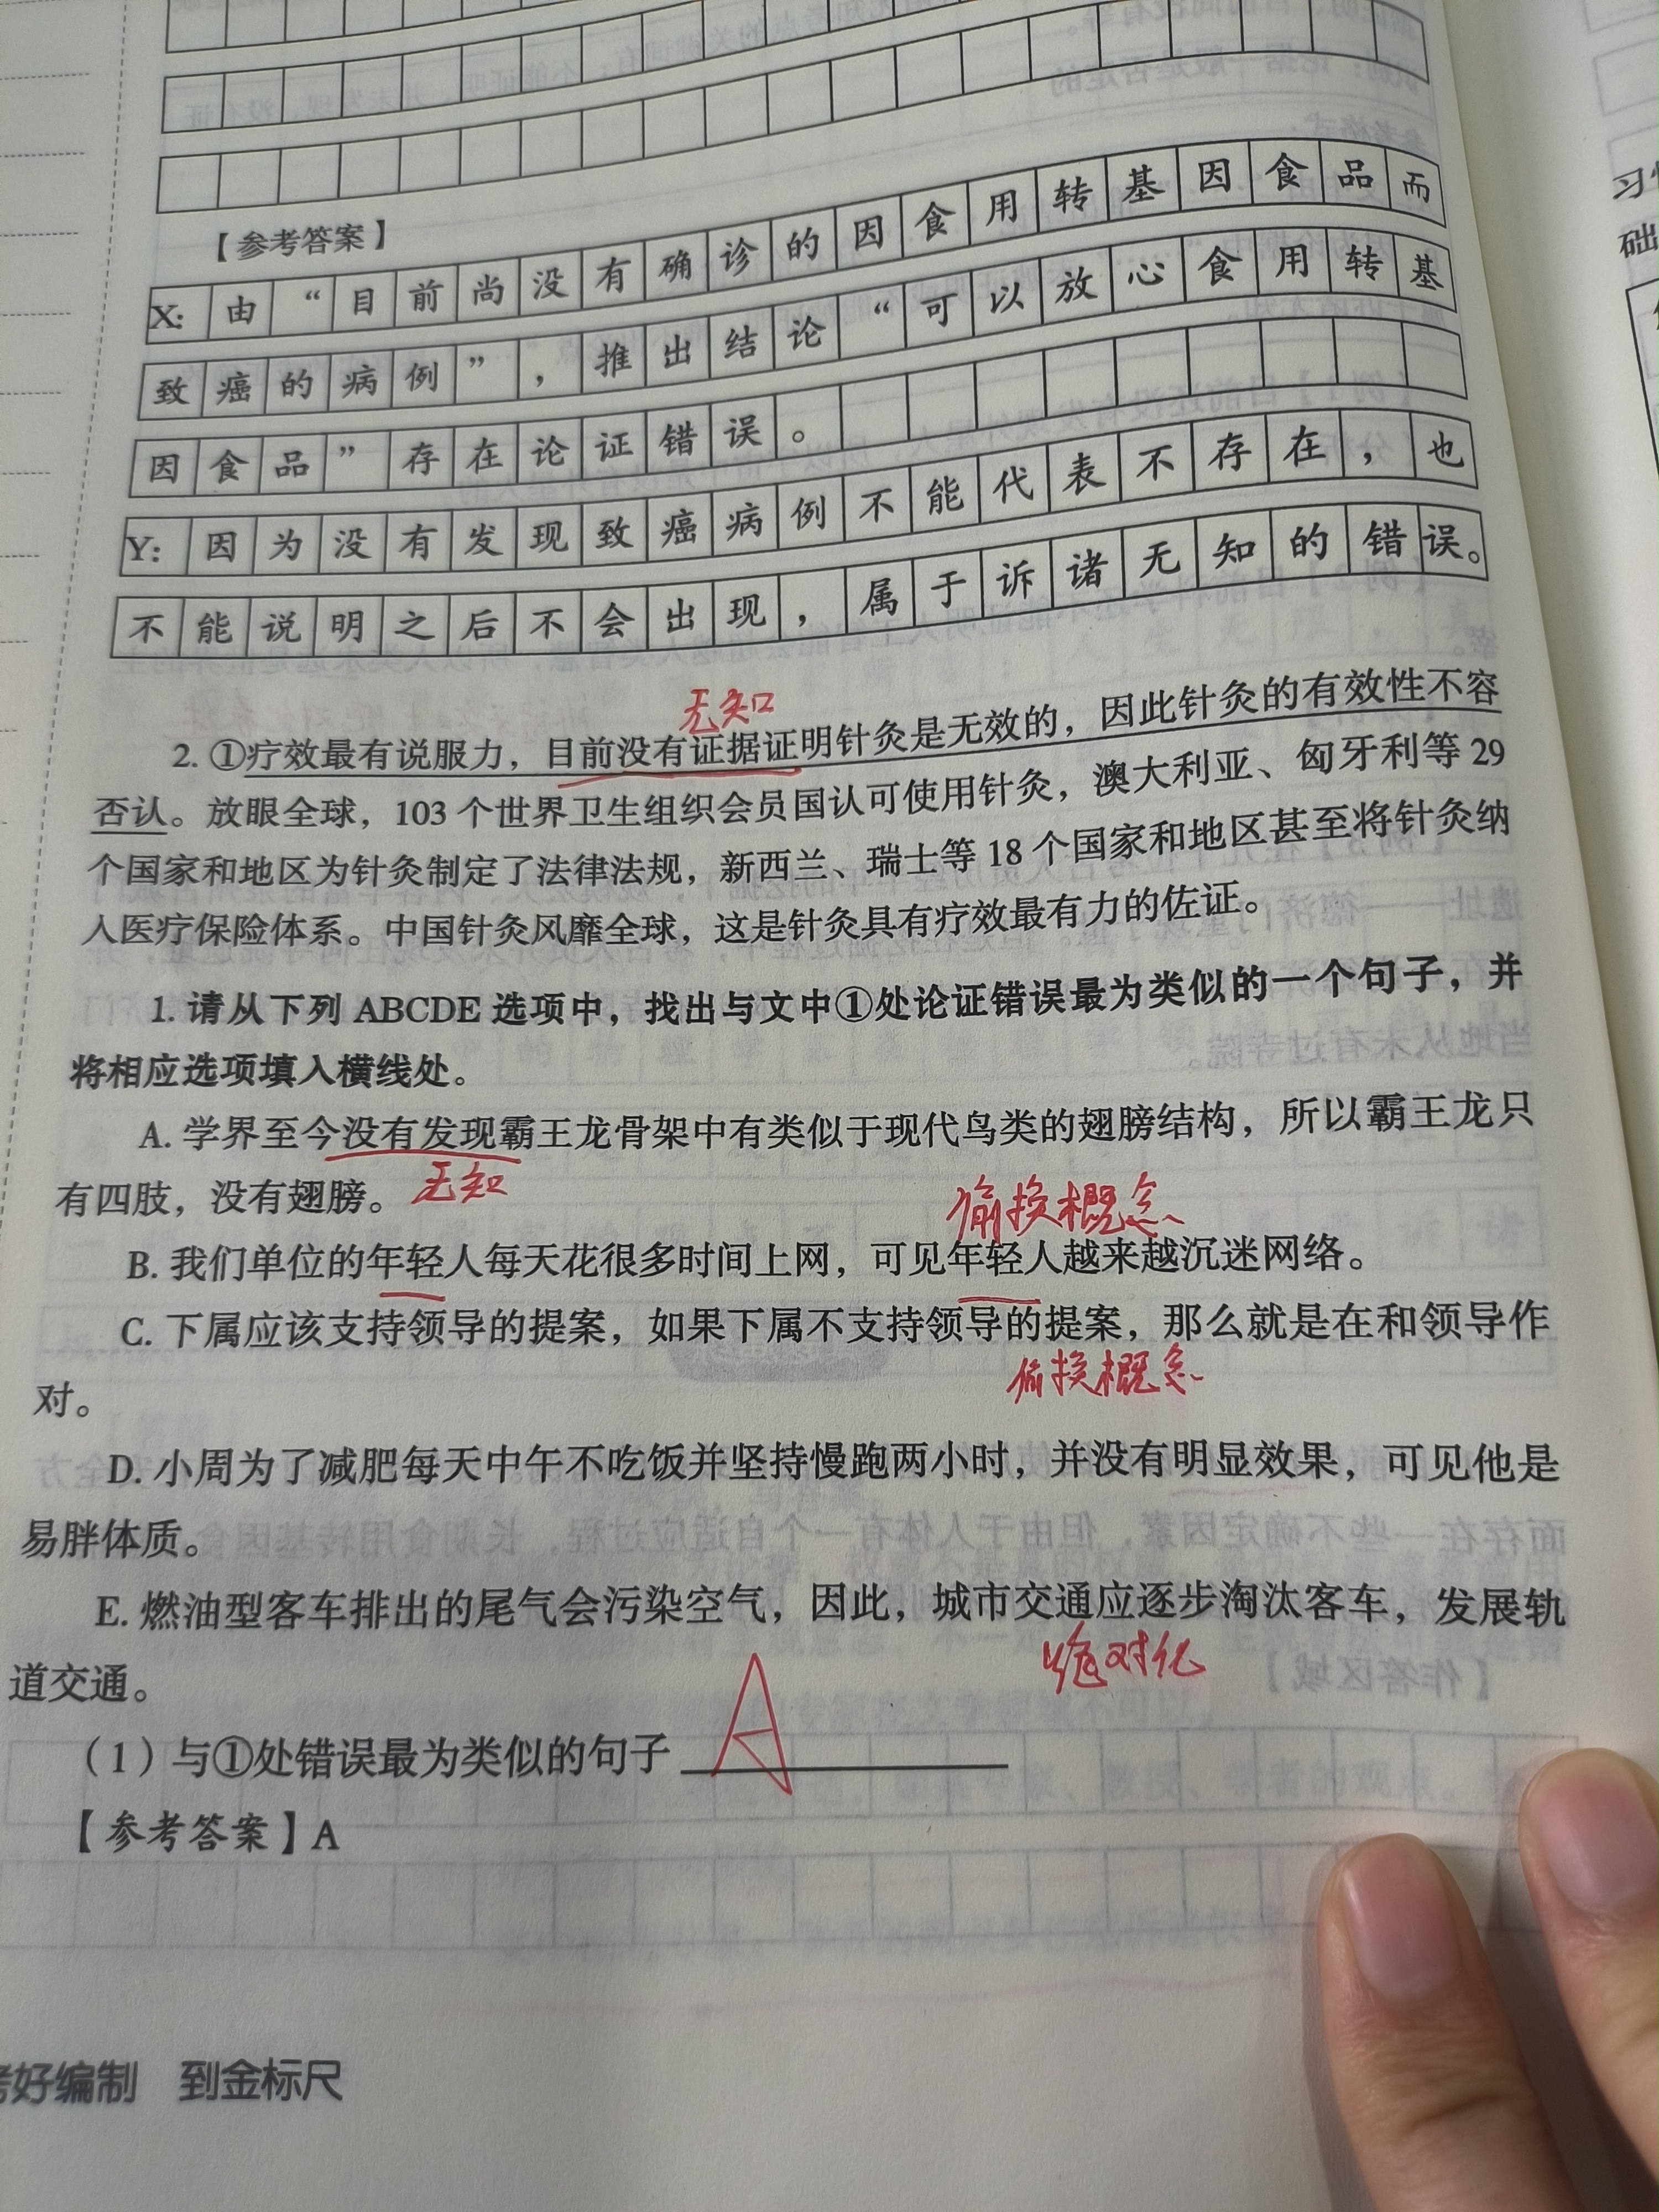 【参考答案】
X: 由“目前尚没有确诊的因食用转基因食品而
致癌的病例”，推出结论“可以放心食用转基
因食品”存在论证错误。
Y: 因为没有发现致癌病例不能代表不存在，也
不能说明之后不会出现，属于诉诸无知的错误。
无知
2. ①疗效最有说服力，目前没有证据证明针灸是无效的，因此针灸的有效性不容
否认。放眼全球，103 个世界卫生组织会员国认可使用针灸，澳大利亚、匈牙利等 29
个国家和地区为针灸制定了法律法规，新西兰、瑞士等 18 个国家和地区甚至将针灸纳
入医疗保险体系。中国针灸风靡全球，这是针灸具有疗效最有力的佐证。
1. 请从下列 ABCDE 选项中，找出与文中①处论证错误最为类似的一个句子，并
将相应选项填入横线处。
A. 学界至今没有发现霸王龙骨架中有类似于现代鸟类的翅膀结构，所以霸王龙只
有四肢，没有翅膀。 无知
偷换概念
B. 我们单位的年轻人每天花很多时间上网，可见年轻人越来越沉迷网络。
C. 下属应该支持领导的提案，如果下属不支持领导的提案，那么就是在和领导作
对。
偷换概念
D. 小周为了减肥每天中午不吃饭并坚持慢跑两小时，并没有明显效果，可见他是
易胖体质。
E. 燃油型客车排出的尾气会污染空气，因此，城市交通应逐步淘汰客车，发展轨
道交通。
绝对化
（1）与①处错误最为类似的句子 A
【参考答案】A
考好编制 到金标尺
习
础